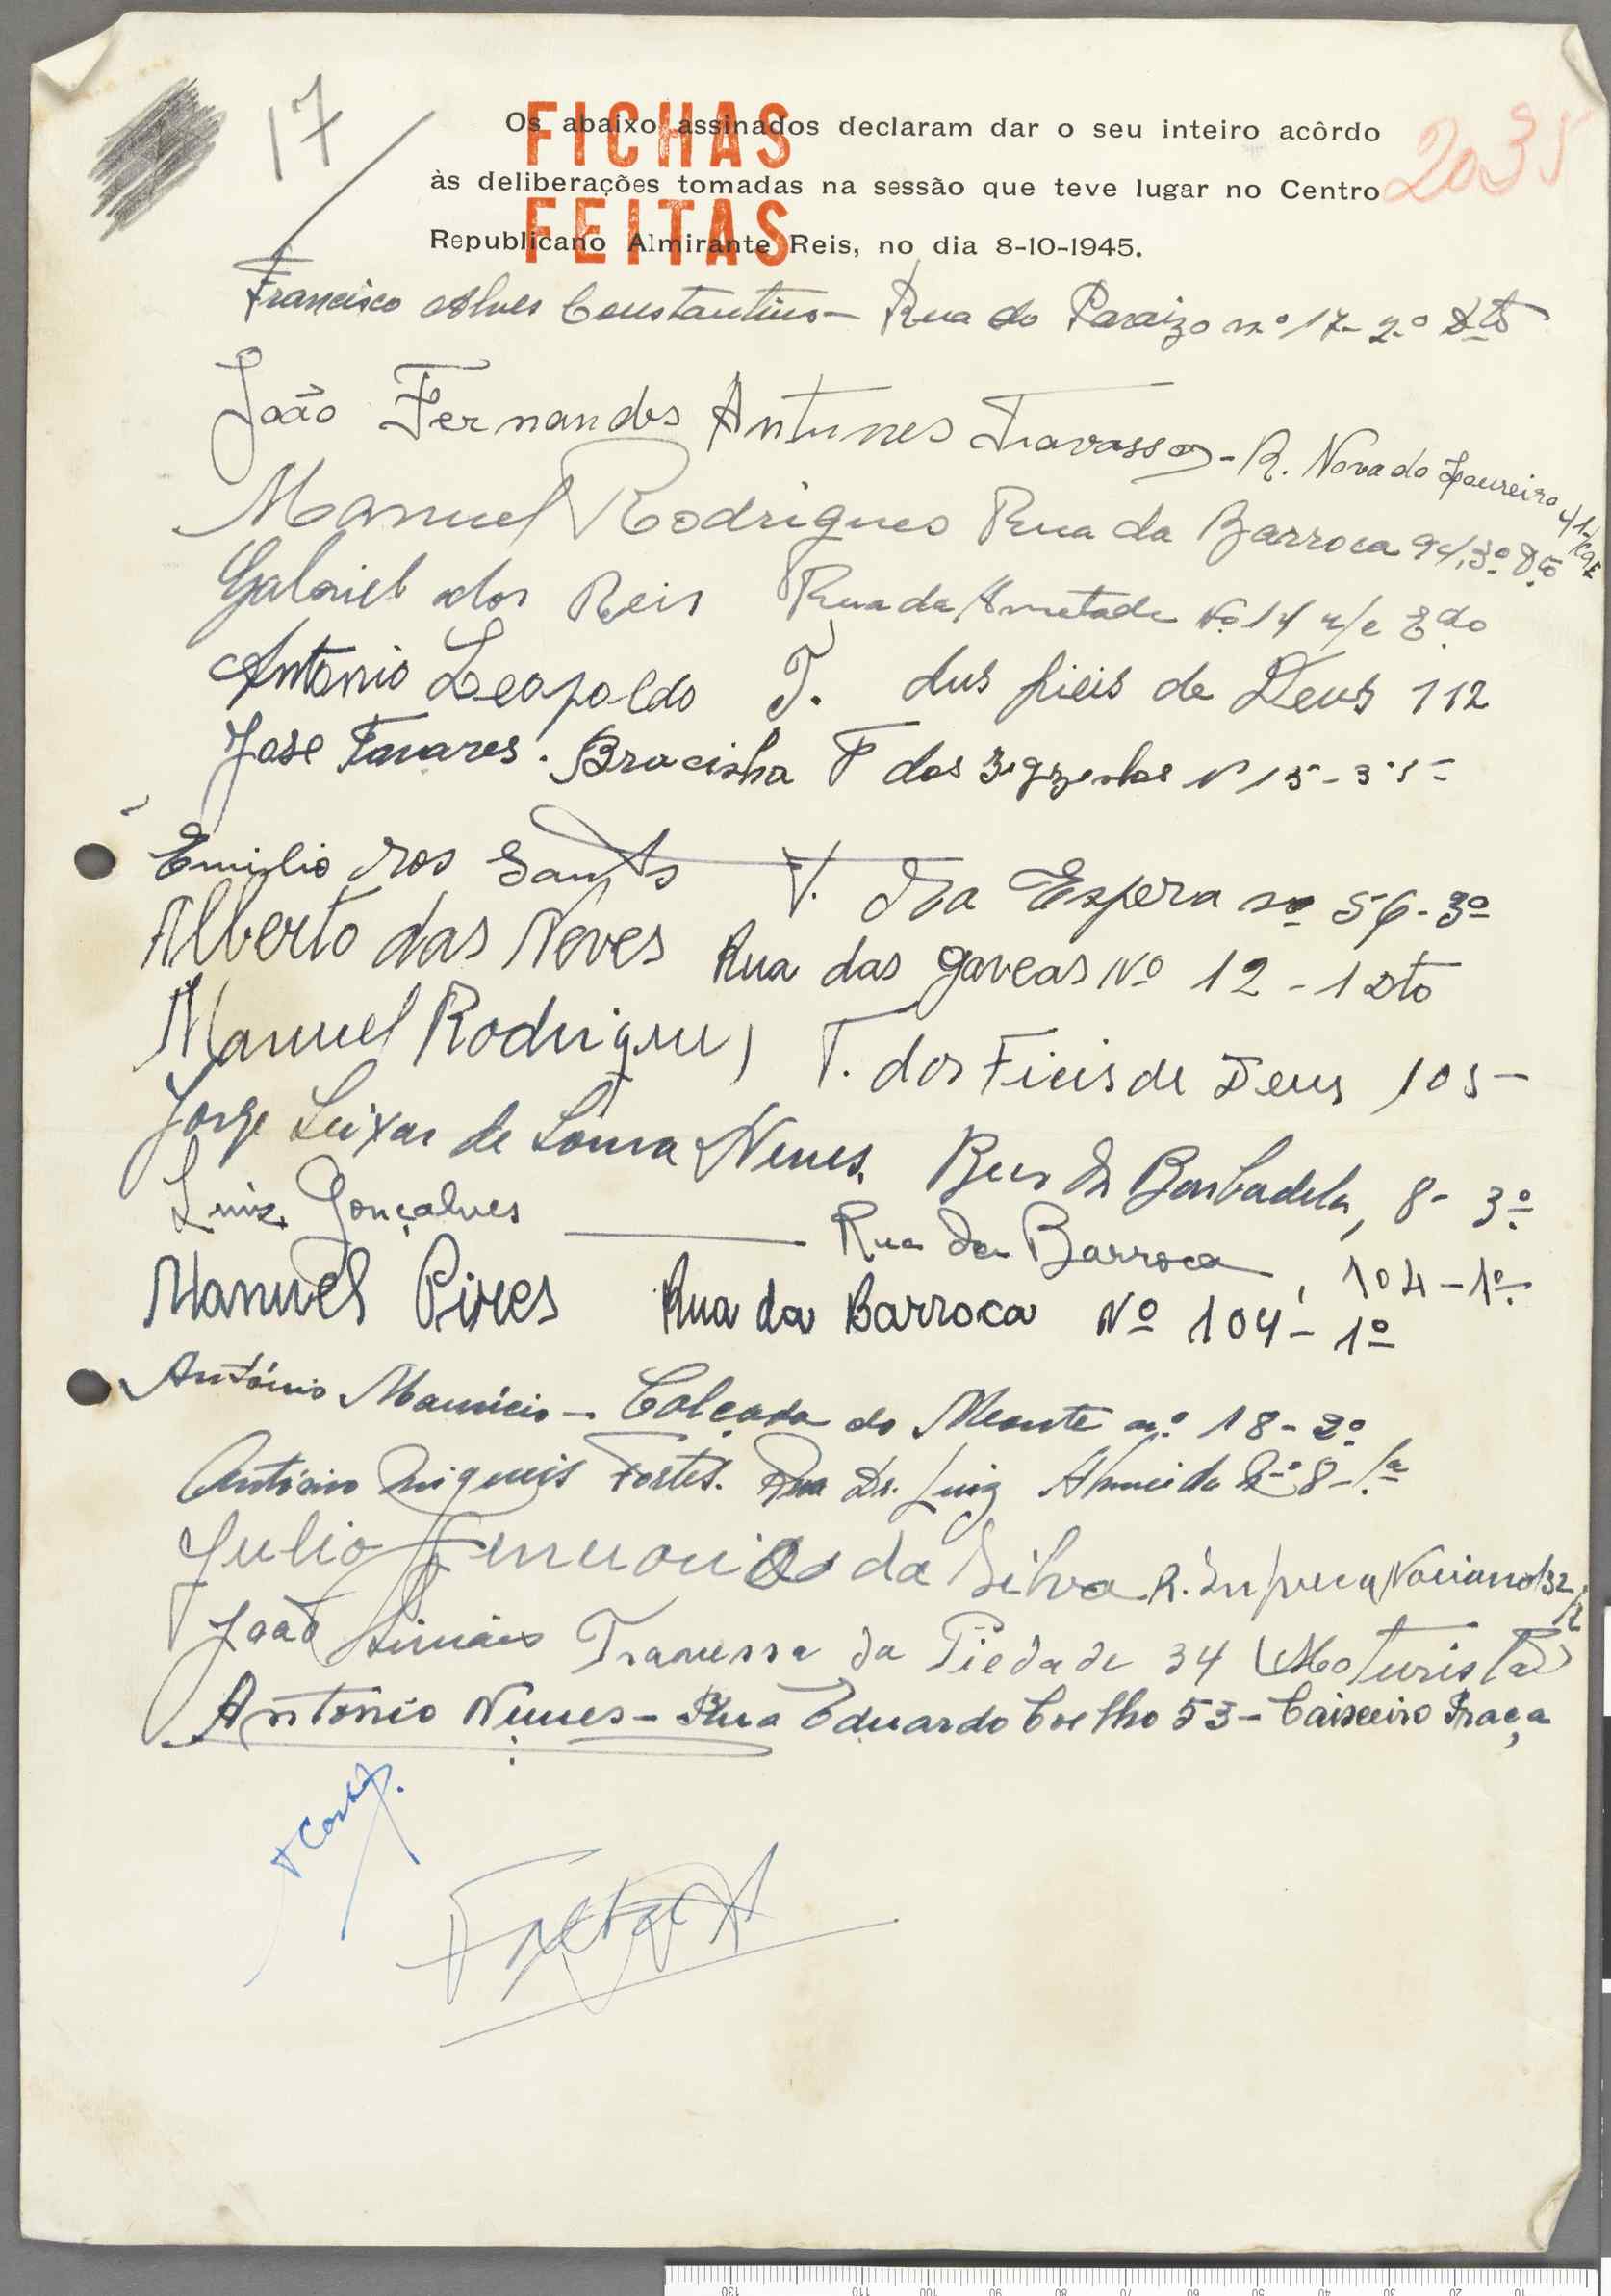 17
2035
FICHAS
FEITAS
Os abaixo assinados declaram dar o seu inteiro acôrdo
às deliberações tomadas na sessão que teve lugar no Centro
Republicano Almirante Reis, no dia 8-10-1945.
Francisco Alves Constantino - Rua do Paraizo nº 17-2º Dto
João Fernandes Antunes Travassos - R. Nova do Loureiro
Manuel Rodrigues Rua da Barroca 94, 3º Dto
Gabriel dos Reis Rua da Ametade Nº 14 r/c Edo
Antonio Leopoldo T. dus fieis de Deus 112
Jose Tavares. T dos Nº 15-3º
Emilio dos Santos T. da Espera nº 56-3º
Alberto das Neves Rua das gaveas Nº 12-1 Dto
Manuel Rodrigues T. dos Fieis de Deus 105-
Jorge de Sousa Nunes. 8-3º
Luiz Gonçalves Rua da Barroca, 104-1º
Manuel Pires Rua da Barroca Nº 104-1º
António Maurício - Calçada do Monte nº 18-2º
António Fortes. Rua Dr. Luiz Almeida
Julio da Silva R.
João Simões Travessa da Piedade 34 (Moturista)
Antonio Nunes - Rua Eduardo Coelho 53 - Caixeiro Praça